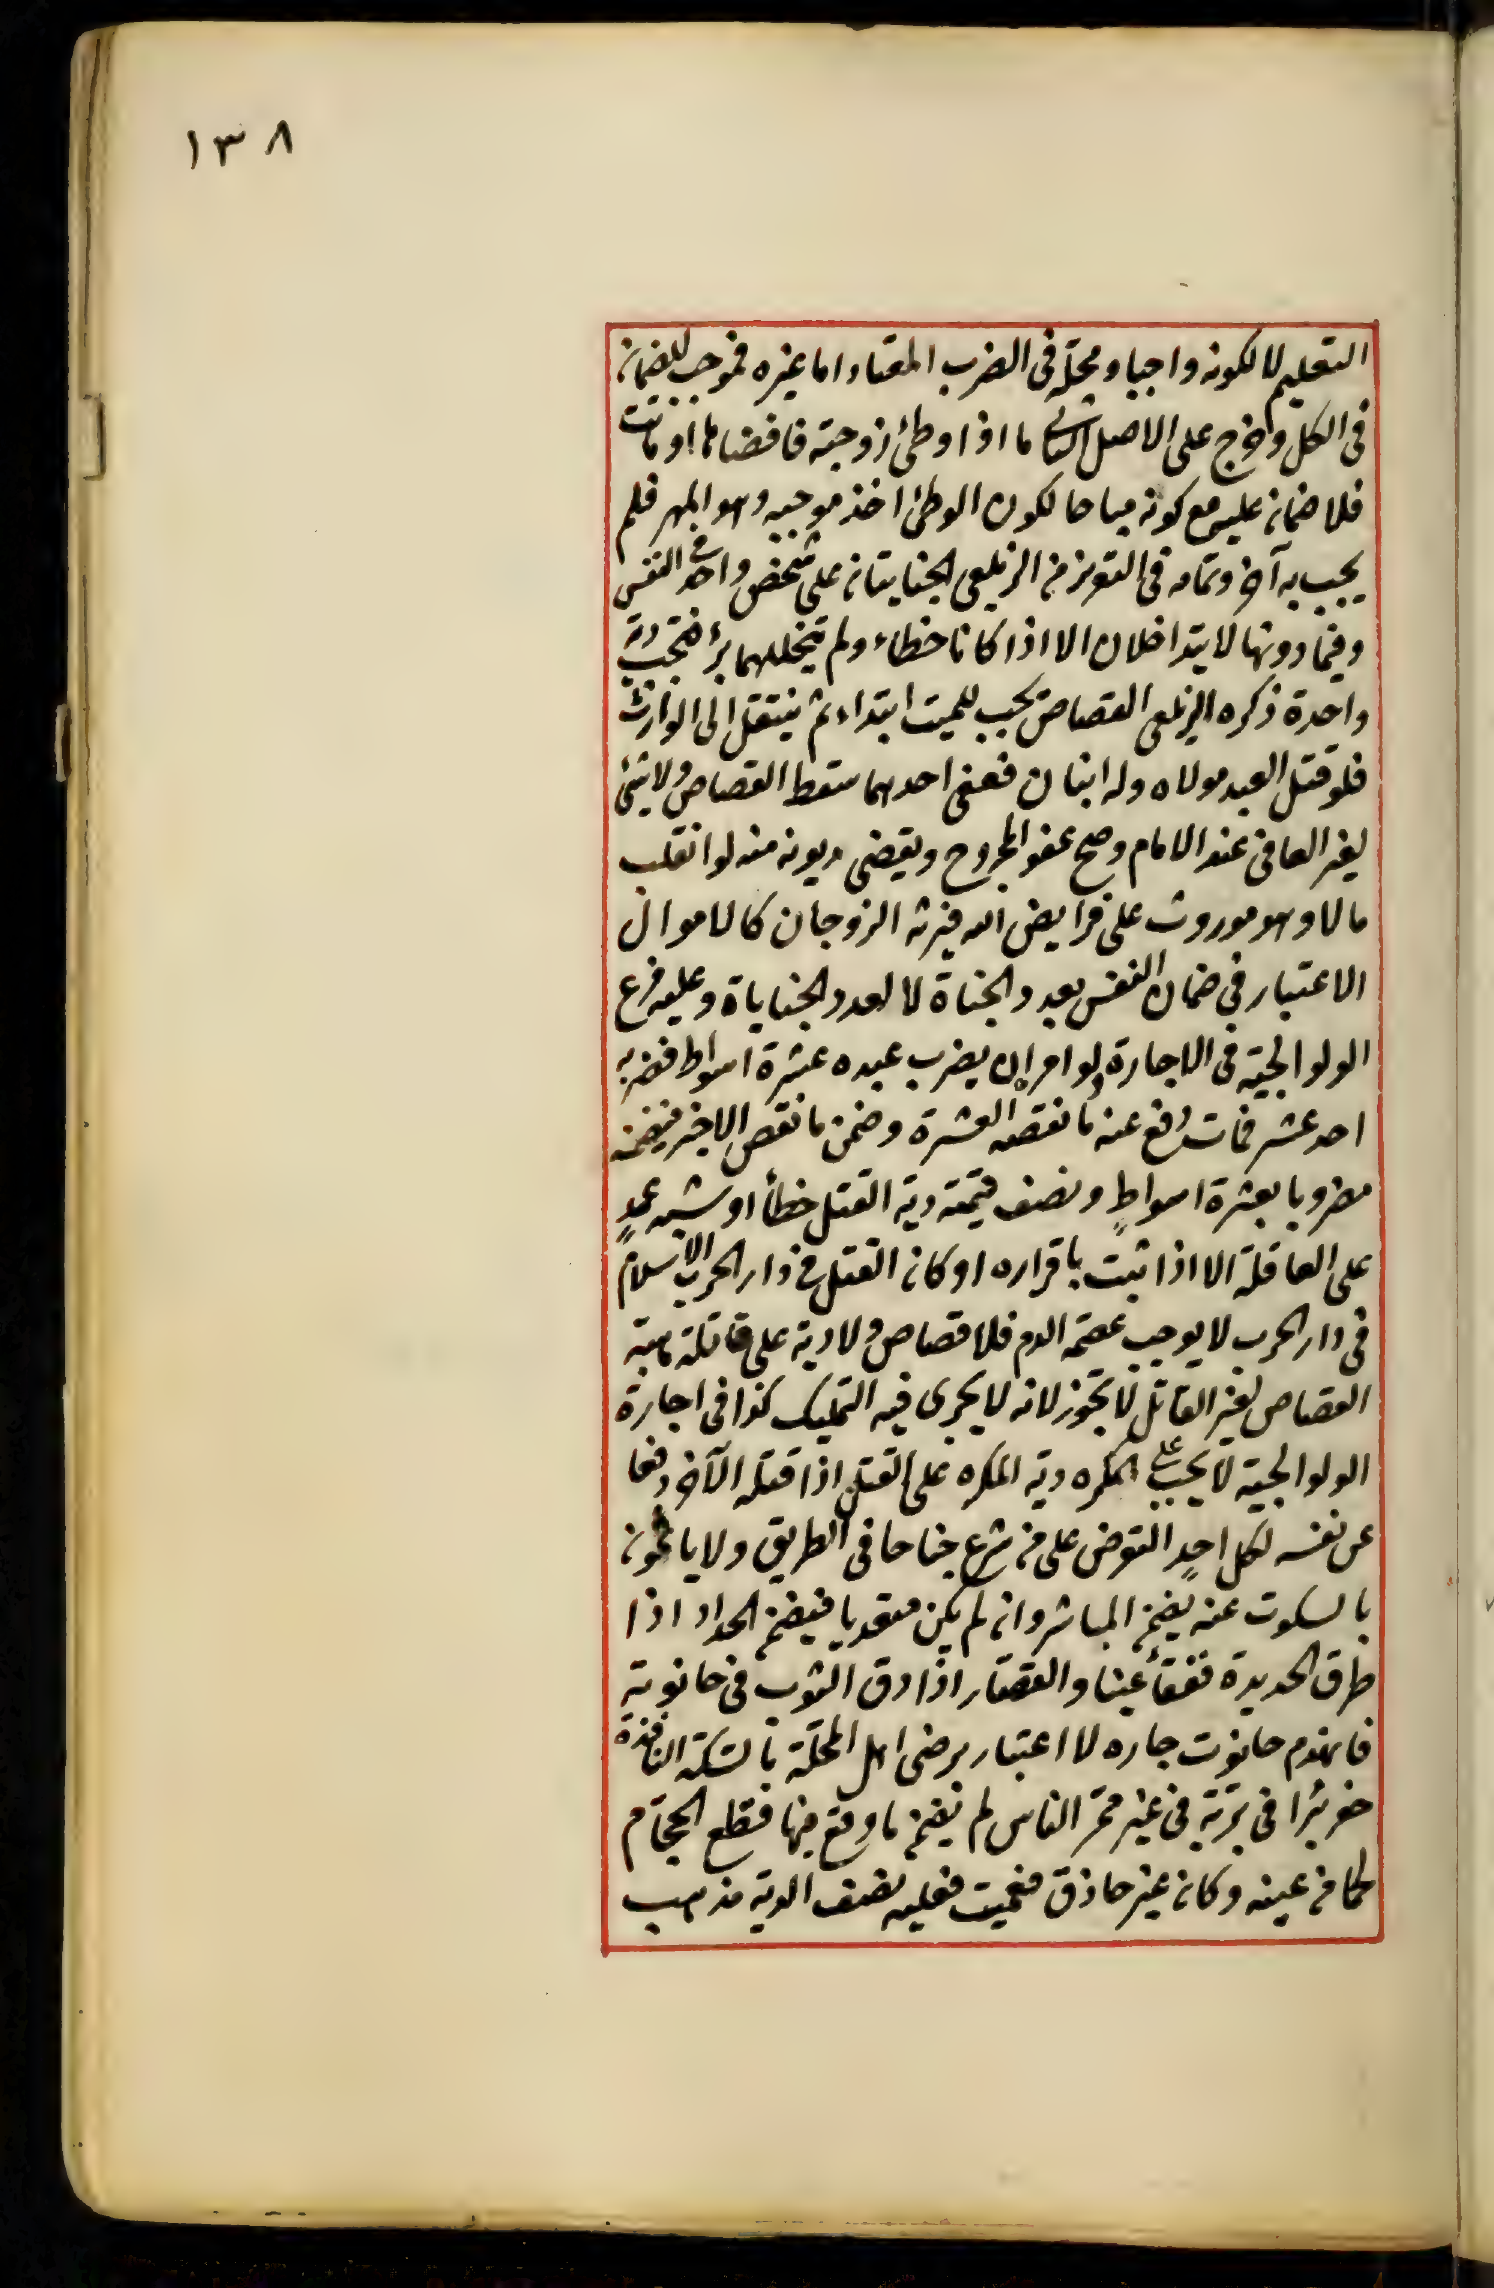 ١٣٨
التعليم لا لكونه واجبا ومحله فى الضرب المعتاد اما غيره فموجب للضمان
فى الكل وخرج على الاصل الثانى ما اذا وطئ زوجته فافضاها او ماتت
فلا ضمان عليه مع كونه مباحا لكون الوطئ اخذ موجبه وهو المهر فلم
يجب به آخر وتمامه فى التعزير من الزيلعى الجنايتان على شخص واحد فى النفس
وفيما دونها لا يتداخلان الا اذا كانا خطاء ولم يتخللهما برء فتجب دية
واحدة ذكره الزيلعى القصاص يجب للميت ابتداء ثم ينتقل الى الوارث
فلو قتل العبد مولاه وله ابنان فعفى احدهما سقط القصاص ولا شئ
لغير العافى عند الامام وصح عفو المجروح ويقضى ديونه منه لو انقلب
مالا وهو موروث على فرايض الله فيرثه الزوجان كالاموال
الاعتبار فى ضمان النفس بعدد الجناة لا لعدد الجناياة وعليه فرع
الولوالجية فى الاجارة ولو امر ان يضرب عبده عشرة اسواط فضربه
احد عشر فمات رفع عنه ما نقصه العشرة وضمن ما نقص الاخير فيضمنه
مضروبا بعشرة اسواطٍ ونصف قيمته دية القتل خطأ او شبه عمدٍ
على العاقلة الا اذا ثبت باقراره او كان القتل فى دار الحرب الاسلام
فى دار الحرب لا يوجب عصمة الدم فلا قصاص ولا دية على قاتله هبة
القصاص لغير القاتل لا تجوز لانه لا يجرى فيه التمليك كذا فى اجارة
الولوالجية لا يجب على المكره دية المكره على القتل اذا قتله الآخر دفعا
عن نفسه لكل احدٍ التعرض على من شرع جناحا فى الطريق ولا ياثمون
بالسكوت عنه يضمن المباشر وان لم يكن متعديا فيضمن الحداد اذا
طرق الحديدة ففقأ عينا والقصار اذا دق الثوب فى حانوته
فانهدم حانوت جاره لا اعتبار برضى اهل المحلة بالسكة النافذة
حفر بئرا فى برّيّة فى غير ممر الناس لم يضمن ما وقع فيها قطع الحجّام
لحما من عينه وكان غير حاذق فعميت فعليه نصف الدية مذهب